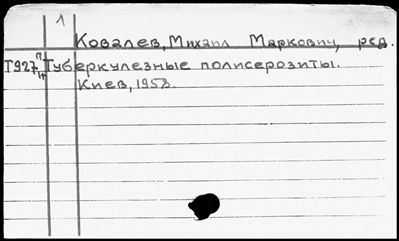 1
Ковалев, Михаил Маркович, ред.
Т927 Туберкулезные полисерозиты.
Киев, 1958.